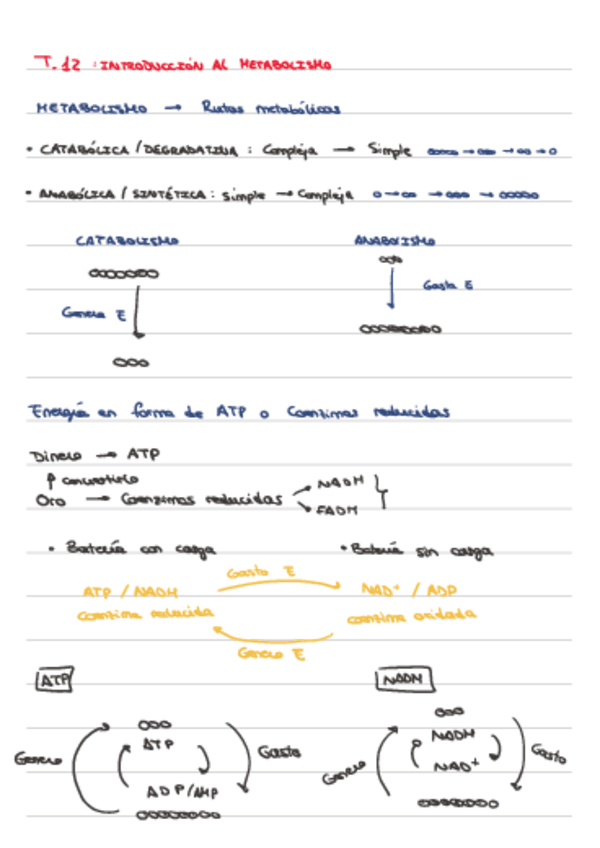 T.12 : INTRODUCCIÓN AL METABOLISMO
METABOLISMO → Rutas metabólicas
• CATABÓLICA / DEGRADATIVA : Compleja → Simple
• ANABÓLICA / SINTÉTICA : Simple → Compleja
CATABOLISMO ANABOLISMO
Gasta E
Genera E
Energía en forma de ATP o Coenzimas reducidas
Dinero → ATP
↑ convertirlo
Oro → Coenzimas reducidas → NADH
→ FADH
• Batería con carga • Batería sin carga
Gasto E
ATP / NADH NAD⁺ / ADP
Coenzima reducida coenzima oxidada
Genero E
ATP NADH
Genero ATP Gasto
ADP/AMP
Genero NADH Gasto
NAD⁺